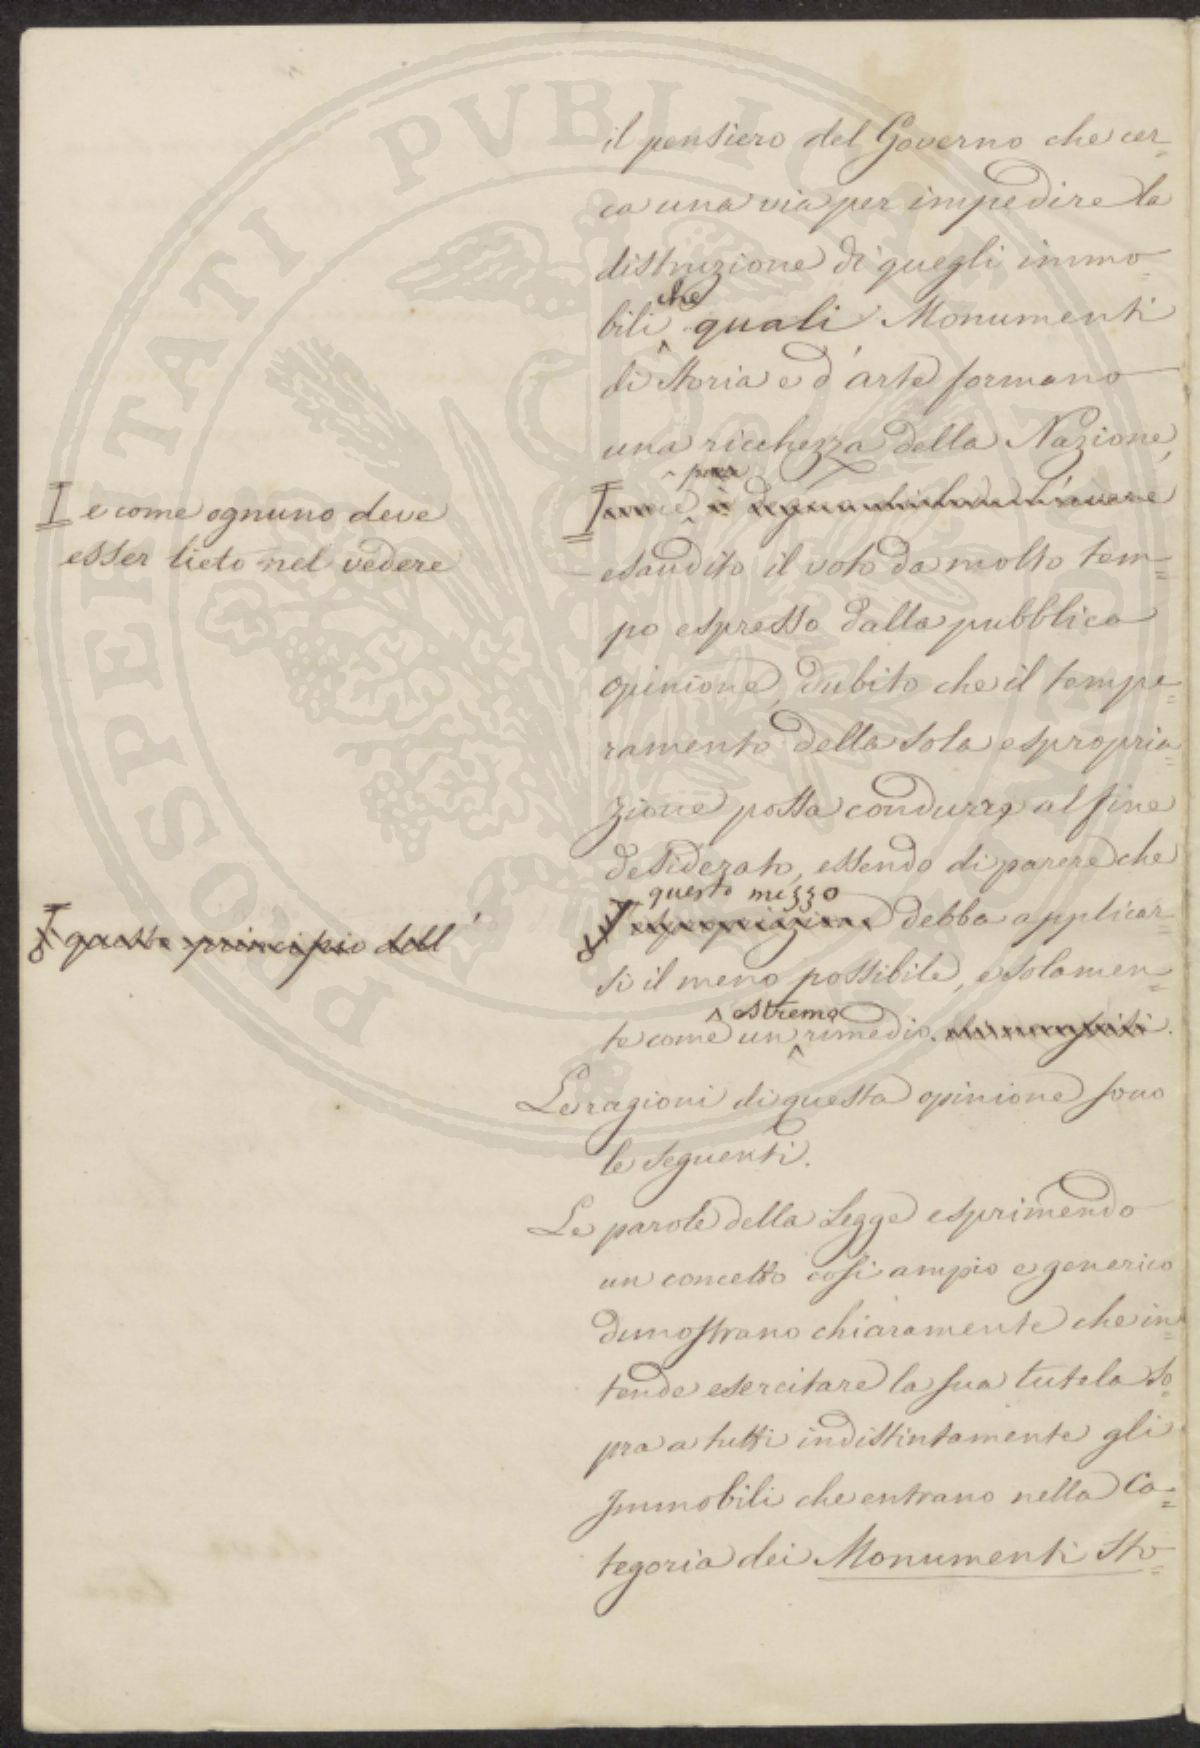 il pensiero del Governo che cer=
ca una via per impedire la
distruzione di quegli immo=
che
bili quali Monumenti
di Storia e d'arte formano
una ricchezza della Nazione,
e come ognuno deve
esser lieto nel vedere
esaudito il voto da molto tem=
po espresso dalla pubblica
opinione, dubito che il tempe=
ramento della sola espropria=
zione possa condurre al fine
desiderato, essendo di parere che
questo mezzo
questo principio dell'
espropriazione debba applicar=
si il meno possibile, e solamen=
estremo
te come un rimedio.
Le ragioni di questa opinione sono
le seguenti.
Le parole della Legge esprimendo
un concetto così ampio e generico
dimostrano chiaramente che in=
tende esercitare la sua tutela so=
pra a tutti indistintamente gli
Immobili che entrano nella Ca=
tegoria dei Monumenti Sto=
PROSPERITATI PVBLICAE